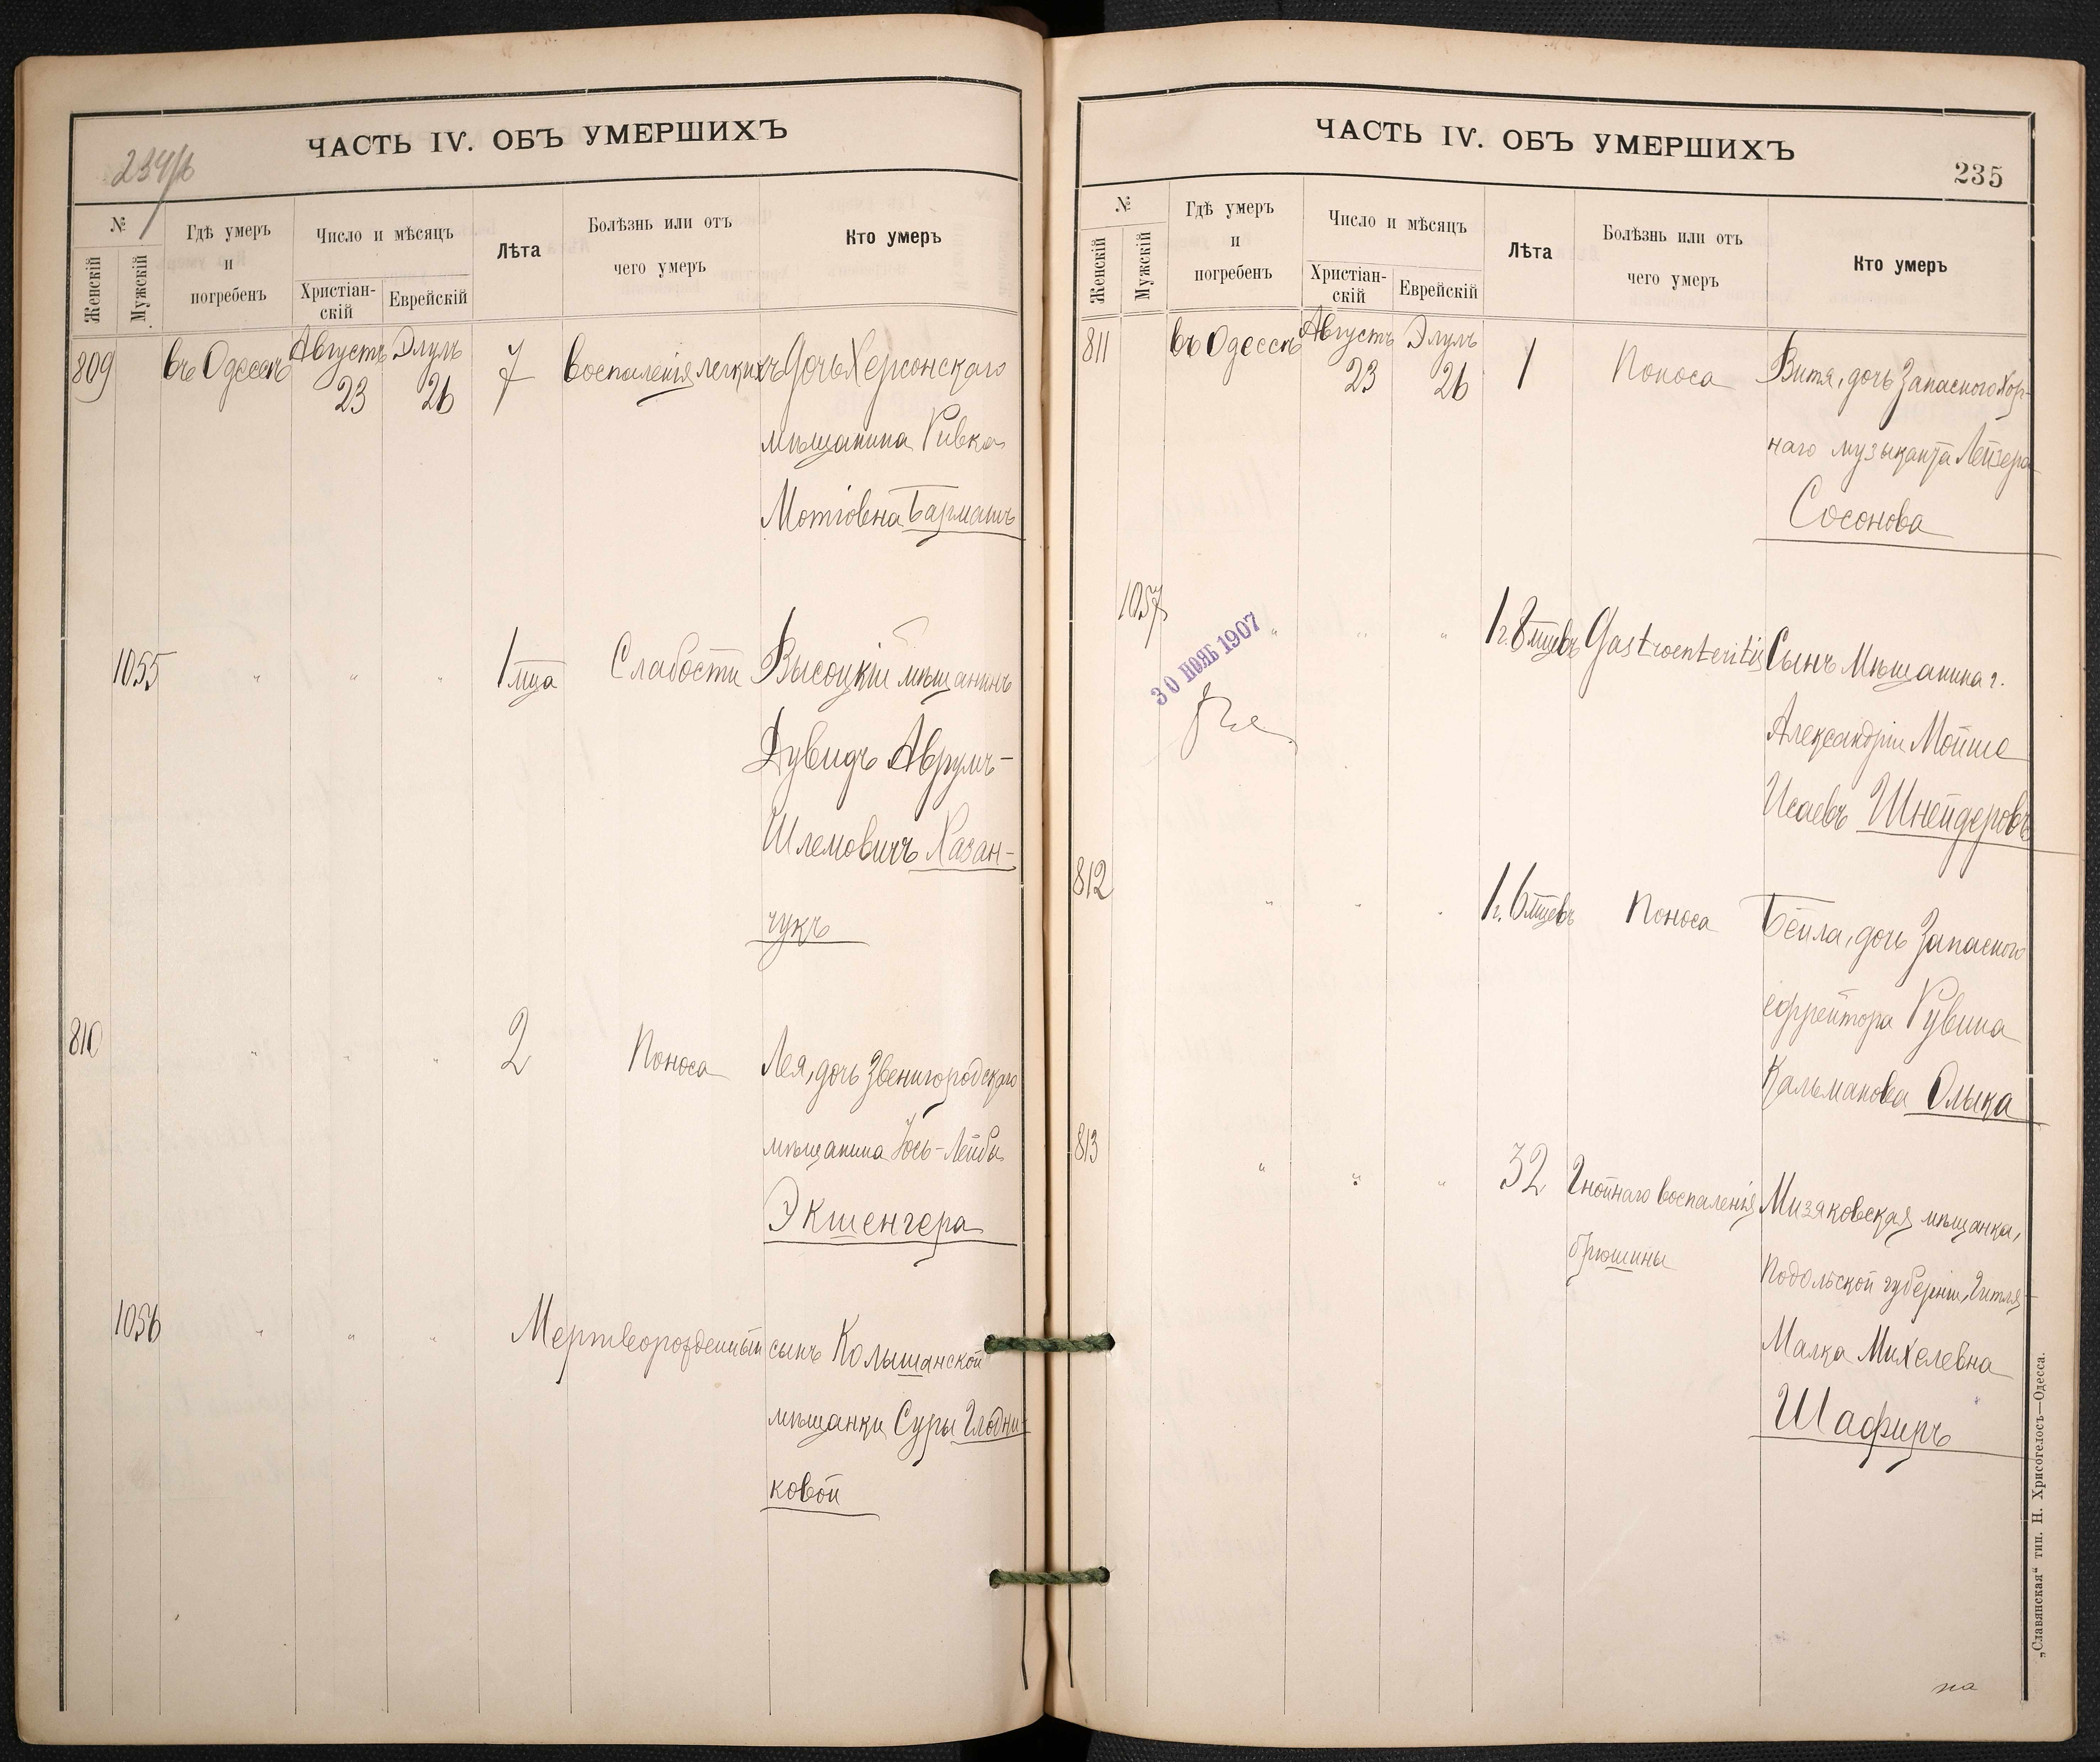 ЧАСТЬ IV. ОБЪ УМЕРШИХЪ
234/б
№
Женскій
Мужскій
Гдѣ умеръ
и
погребенъ
Число и мѣсяцъ
Христіан-
скій
Еврейскій
Лѣта
Болѣзнь или отъ
чего умеръ
Кто умеръ
809 въ Одессѣ Августъ Элулъ 7 воспаленія легкихъ Дочь Херсонскаго
23 26
мѣщанина Ривка
Мотіовна Барманъ
1055 " " " 1 мца Слабости Высоцкій мѣщанинъ
Дувидъ Аврумъ-
Шлемовичъ Казан-
чукъ
810 " " " 2 Поноса Лея, дочь Звенигородскаго
мѣщанина Іось-Лейбы
Экшенгера
1056 " " " Мертворожденный сынъ Колышанской
мѣщанки Суры Глодни-
ковой
ЧАСТЬ IV. ОБЪ УМЕРШИХЪ
235
№
Женскій
Мужскій
Гдѣ умеръ
и
погребенъ
Число и мѣсяцъ
Христіан-
скій
Еврейскій
Лѣта
Болѣзнь или отъ
чего умеръ
Кто умеръ
811 въ Одессѣ Августъ Элулъ 1 Поноса Витя, дочь Запаснаго Хор-
23 26
наго музыканта Лейзера
Сосонова
1057 " " " 1 г. 8 мцевъ Gastroenteritis Сынъ Мѣщанина г.
30 НОЯБ 1907
Александріи Мойше
Исаевъ Шнейдеровъ
812 " " " 1 г. 6 мцевъ Поноса Бейла, дочь Запаснаго
ефрейтора Рувина
Кальманова Олыка
813 " " " 32 Гнойнаго воспаленія Мизяковская мѣщанка,
брюшины
Подольской губерніи, Гитля-
Малка Михелевна
Шафиръ
на
„Славянская“ тип. Н. Хрисогелосъ—Одесса.